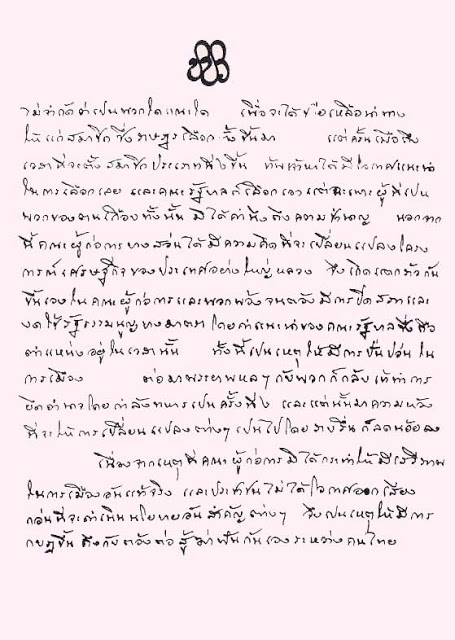 ไม่จำกัดว่าเป็นพวกใดคณะใด เพื่อจะได้ช่วยเหลือนำทาง
ให้แก่สมาชิกซึ่งราษฎรเลือกตั้งขึ้นมา แต่ครั้นเมื่อถึง
เวลาที่จะตั้งสมาชิกประเภทที่ ๒ ขึ้น ข้าพเจ้าหาได้มีโอกาสแนะนำ
ในการเลือกเลย และคณะรัฐบาลก็เลือกเอาแต่ฉะเพาะผู้ที่เป็น
พวกของตนเกือบทั้งนั้น มิได้คำนึงถึงความชำนาญ นอกจาก
นี้คณะผู้ก่อการบางส่วนได้มีความคิดที่จะเปลี่ยนแปลงโครง
การณ์เศรษฐกิจของประเทศอย่างใหญ่หลวง จึงเกิดแตกร้าวกัน
ขึ้นเองในคณะผู้ก่อการและพวกพ้องจนต้องมีการปิดสภาและ
งดใช้รัฐธรรมนูญบางมาตรา โดยคำแนะนำของคณะรัฐบาลซึ่งถือ
ตำแหน่งอยู่ในเวลานั้น ทั้งนี้เป็นเหตุให้มีการปั่นป่วนใน
การเมือง ต่อมาพระยาพหลฯ กับพวกก็กลับเข้าทำการ
ยึดอำนาจโดยกำลังทหารเป็นครั้งที่ ๒ และแต่นั้นมาความหวัง
ที่จะให้การเปลี่ยนแปลงต่างๆ เป็นไปโดยราบรื่นก็ลดน้อยลง
เนื่องจากเหตุที่คณะผู้ก่อการมิได้กระทำให้มีเสรีภาพ
ในการเมืองอันแท้จริง และประชาชนไม่ได้มีโอกาสออกเสียง
ก่อนที่จะดำเนินนโยบายอันสำคัญต่างๆ จึงเป็นเหตุให้มีการ
กบฏขึ้น ถึงกับต้องต่อสู้ฆ่าฟันกันเองระหว่างคนไทย